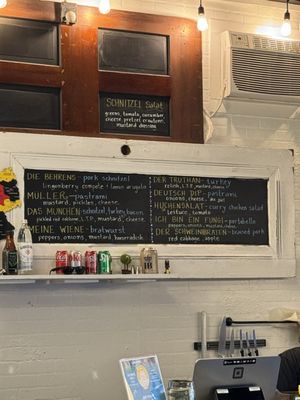 SCHNITZEL Salat
greens, tomato, cucumber
cheese, pretzel croutons
mustard dressing
DIE BEHRENS - pork schnitzel
lingonberry compote + lemon arugula
MÜLLER - pastrami
mustard, pickles, cheese
DAS MÜNCHEN - schnitzel, turkey, bacon,
pickled red cabbage, L.T.P., mustard, cheese
MEINE WIENE - bratwurst
peppers, onions, mustard, horseradish
DER TRUTHAN - turkey
relish, L.T.P., mustard, cheese
DEUTSCH DIP - pastrami
onions, cheese, au jus
HUCHENSALAT - curry chicken salad
lettuce, tomato
ICH BIN EIN FUNGI - portobello
peppers, onions, mustard, cheese
DER SCHWEINBRATEN - braised pork
red cabbage, apple